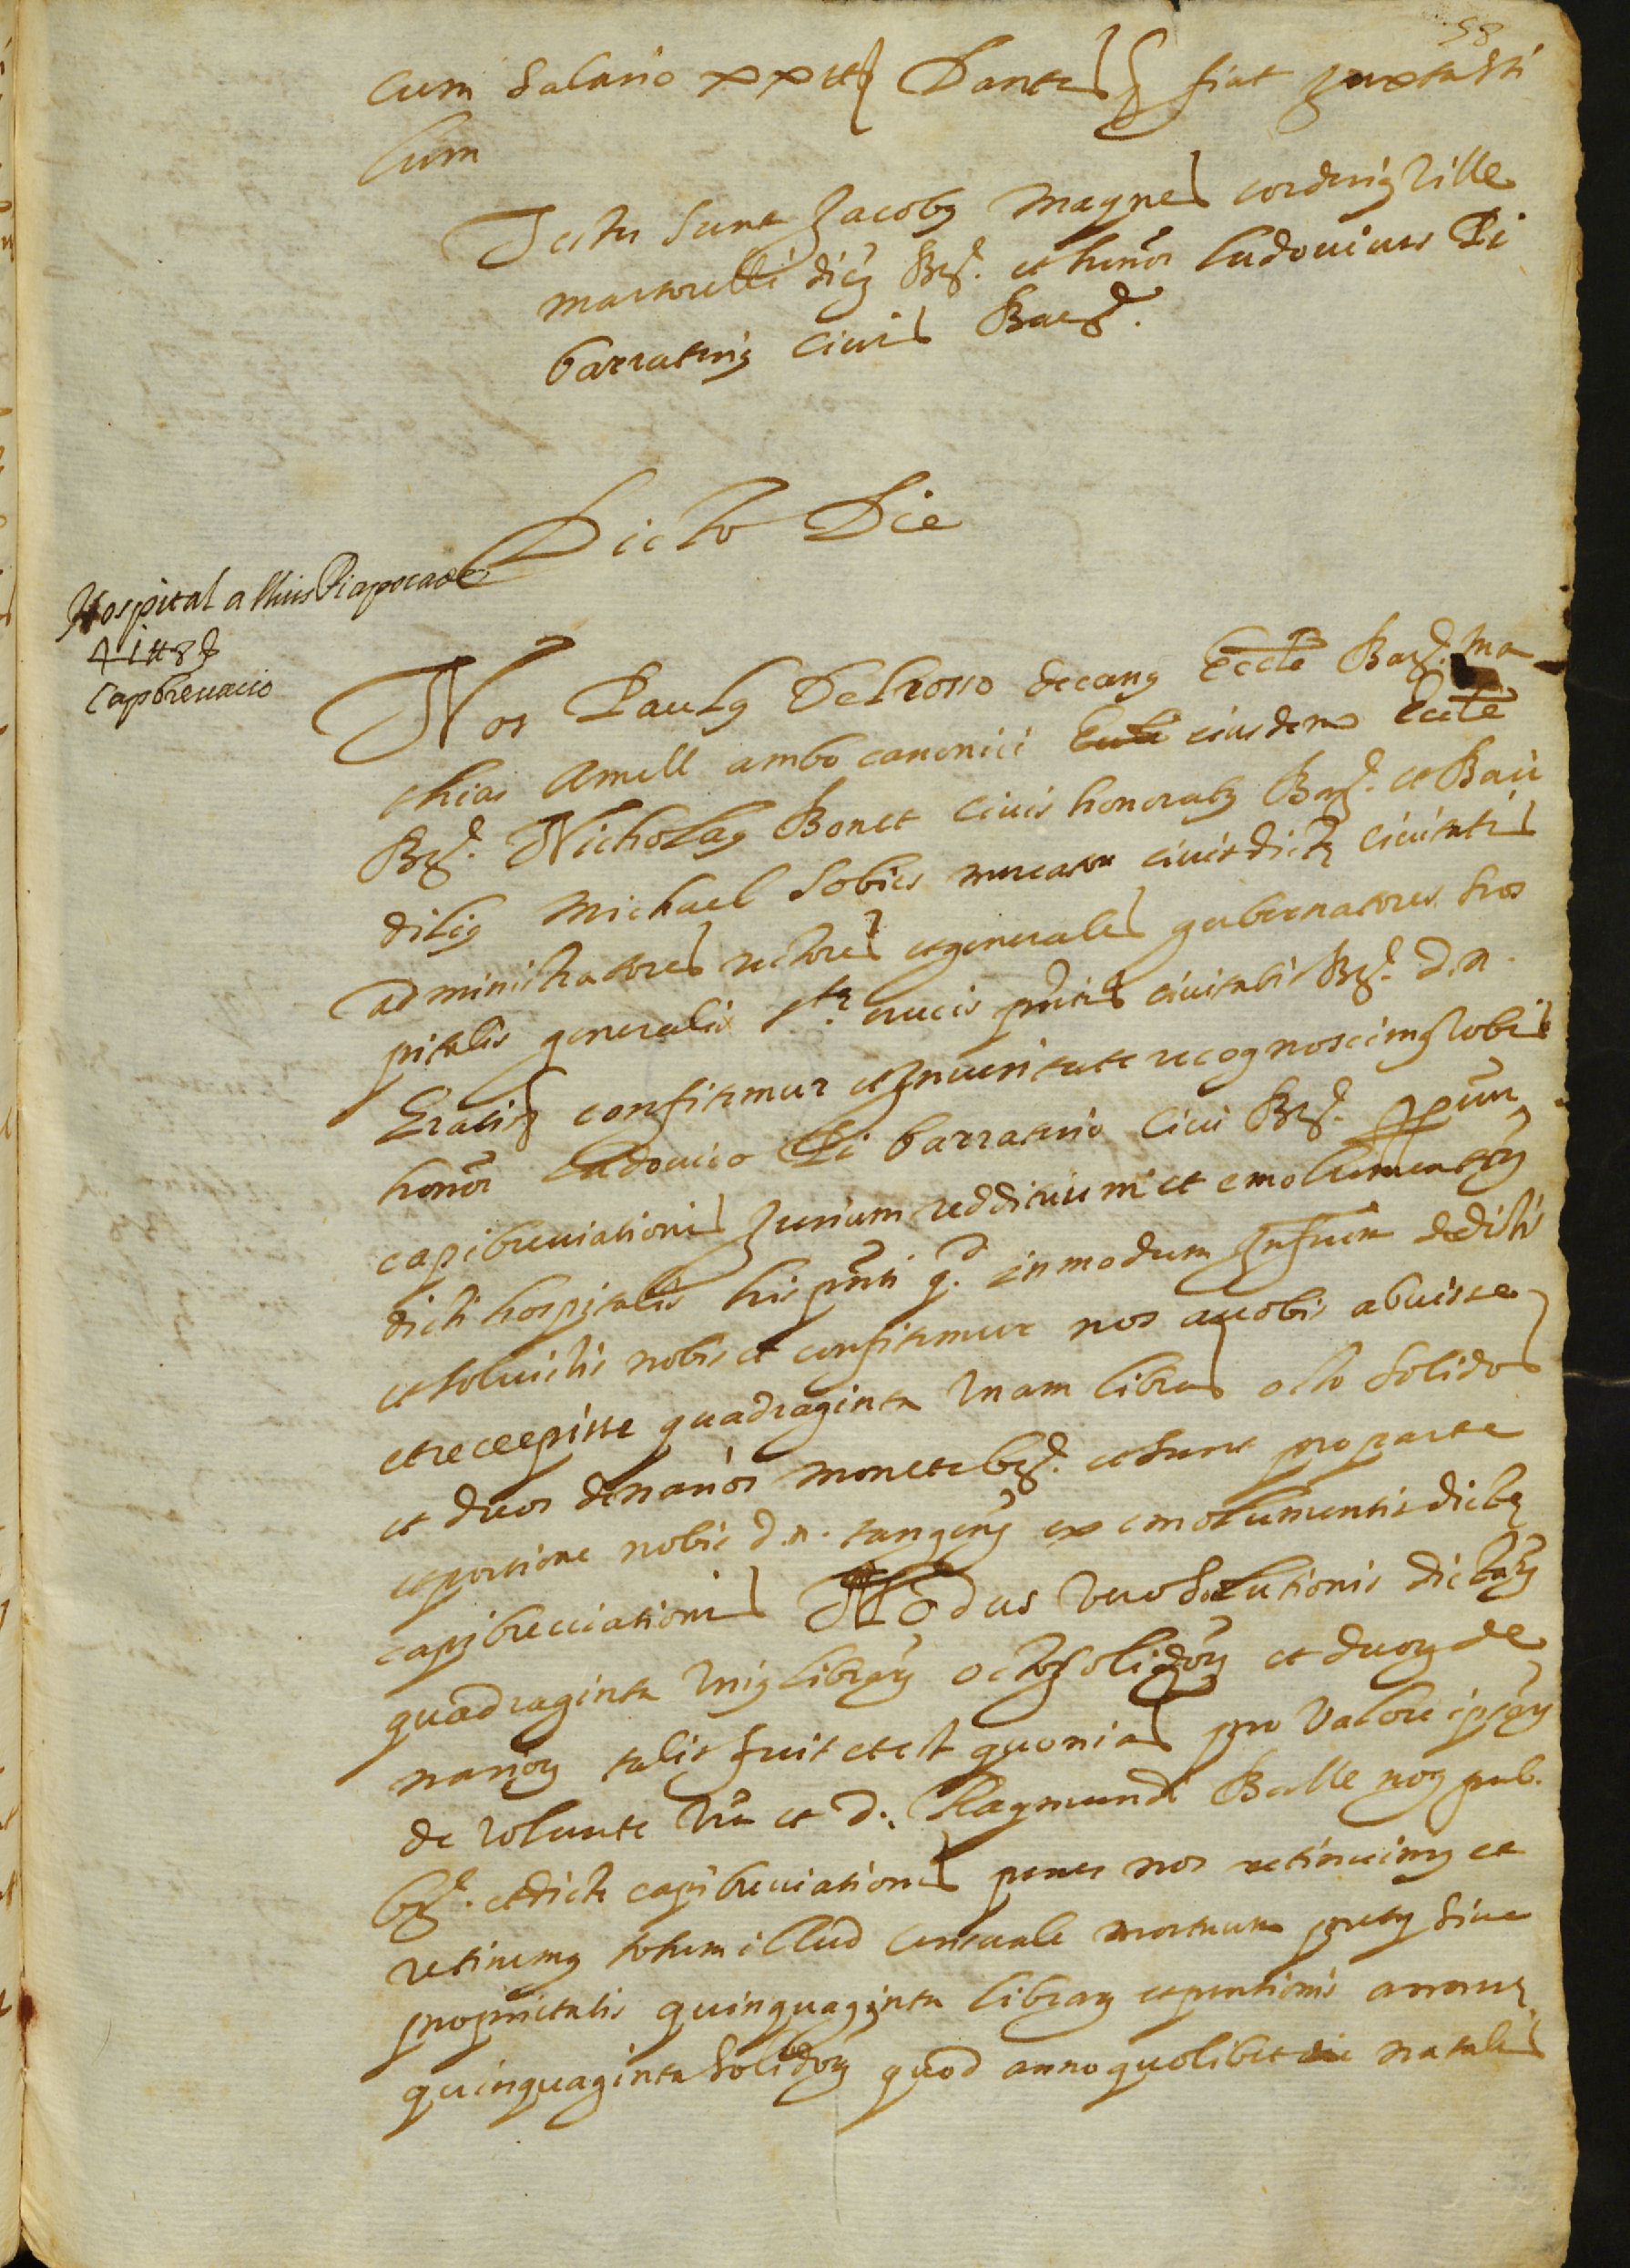 58
cum salario xxiiij Dantes fiat juxta sti
lum
Testes sunt Jacobus Magnes corderius ville
martorelli dioc Bar. et honor Ludovicus Pi
barraterius civis Barc.
Dicto Die
Hospital a lluis Pi apocade
Capbrevacio
Nos Paulus Delrosso decanus Eccle Bar. ma
thias Amell ambo canonici Eccle eiusdem Eccle
Bar. Nicholaus Bonet civis honoratus Bar. et Bau
dilius Michael Sobies mercator civis dicte civitatis
administratores rectores et generales gubernatores hos
pitalis generalis Ste crucis pntis civitatis Bar. d. n.
Gratis confitemur et Jn veritate recognoscimus vobis
honor Ludovico Pi barraterio civi Bar.
capibreviationis Jurium reddituum et emolumentorum
dicti hospitalis his pnti q. in modum Jnfrum dedistis
et solvistis nobis et confitemur nos a vobis abuisse
et recepisse quadraginta Unam libras octo solidos
et duos denarios monete bar. et sunt pro parte
et portione nobis d. n. tangens ex emolumentis dicte
capibreviationis Modus vero solutionis dictarum
quadraginta Unius librarum octo solidorum et duorum de
nariorum talis fuit et est quonias pro valore ipsarum
de volunte vra et d. Raymundi Batlle not pub.
bar. et dicte capibreviationis penes nos retinuimus et
retinemus totum illud censuale mortuum pretii sive
proprietatis quinquaginta librarum et pentionis annue
quinquaginta solidorum quod anno quolibet die natalis